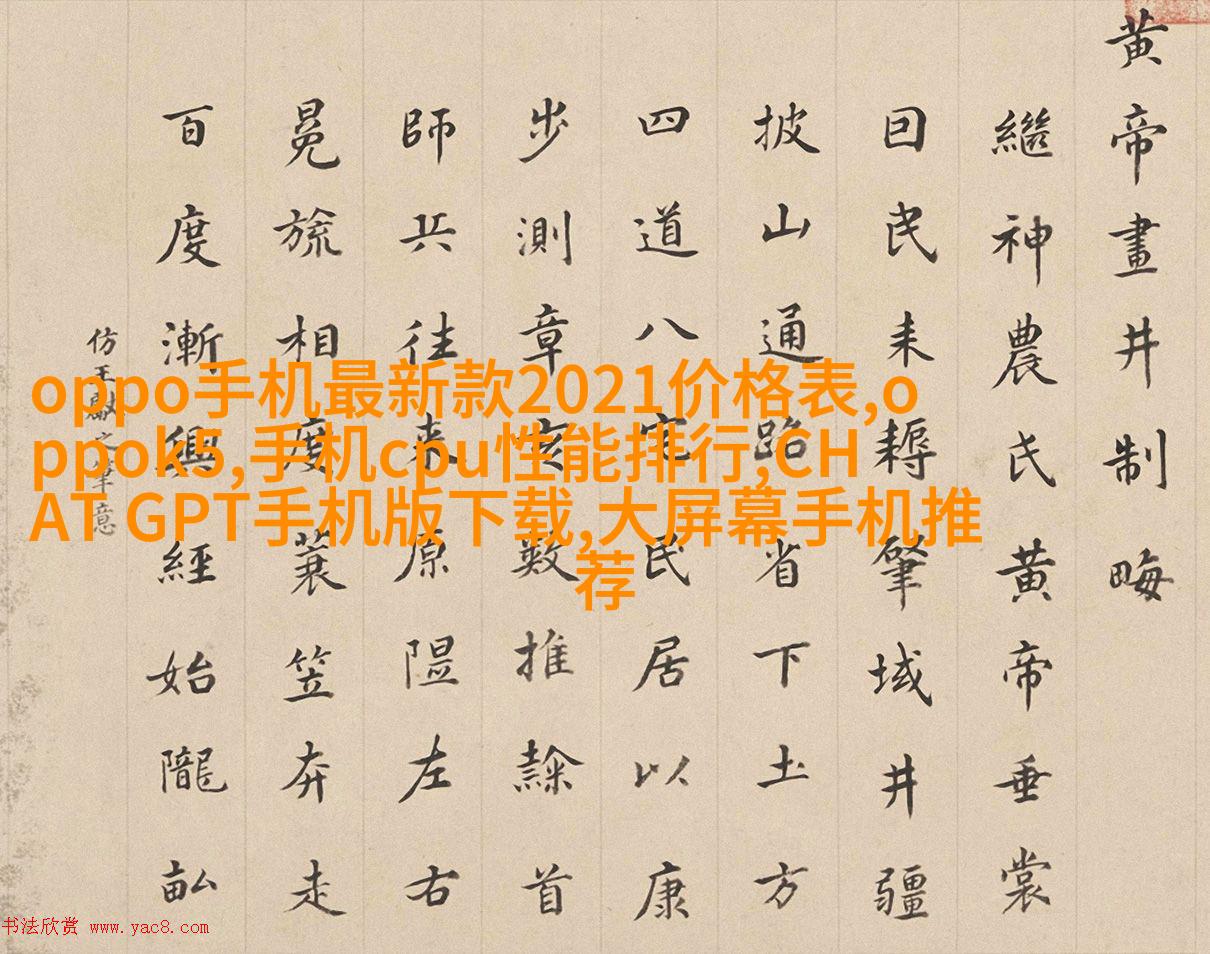 黄帝畫井制畮
繼神農氏黄帝垂裳
囙民耒耨肇域井疆
披山通路省下土方
四道八宅民居以康
步測章亥數推隸首
師兵往来原隰左右
冕旒相度蓑笠奔走
百度漸興經始隴畝
仿王獻之筆意
oppo手机最新款2021价格表,o
ppok5,手机cpu性能排行,CH
AT GPT手机版下载,大屏幕手机推
荐
书法欣赏 www.yac8.com